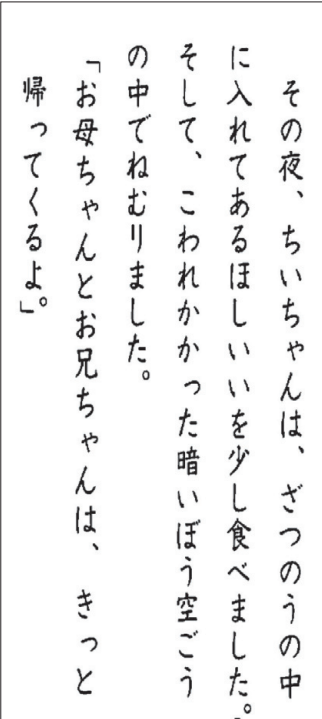 その夜、ちいちゃんは、ざつのうの中
に入れてあるほしいいを少し食べました。
そして、こわれかかった暗いぼう空ごう
の中でねむりました。
「お母ちゃんとお兄ちゃんは、きっと
帰ってくるよ。」